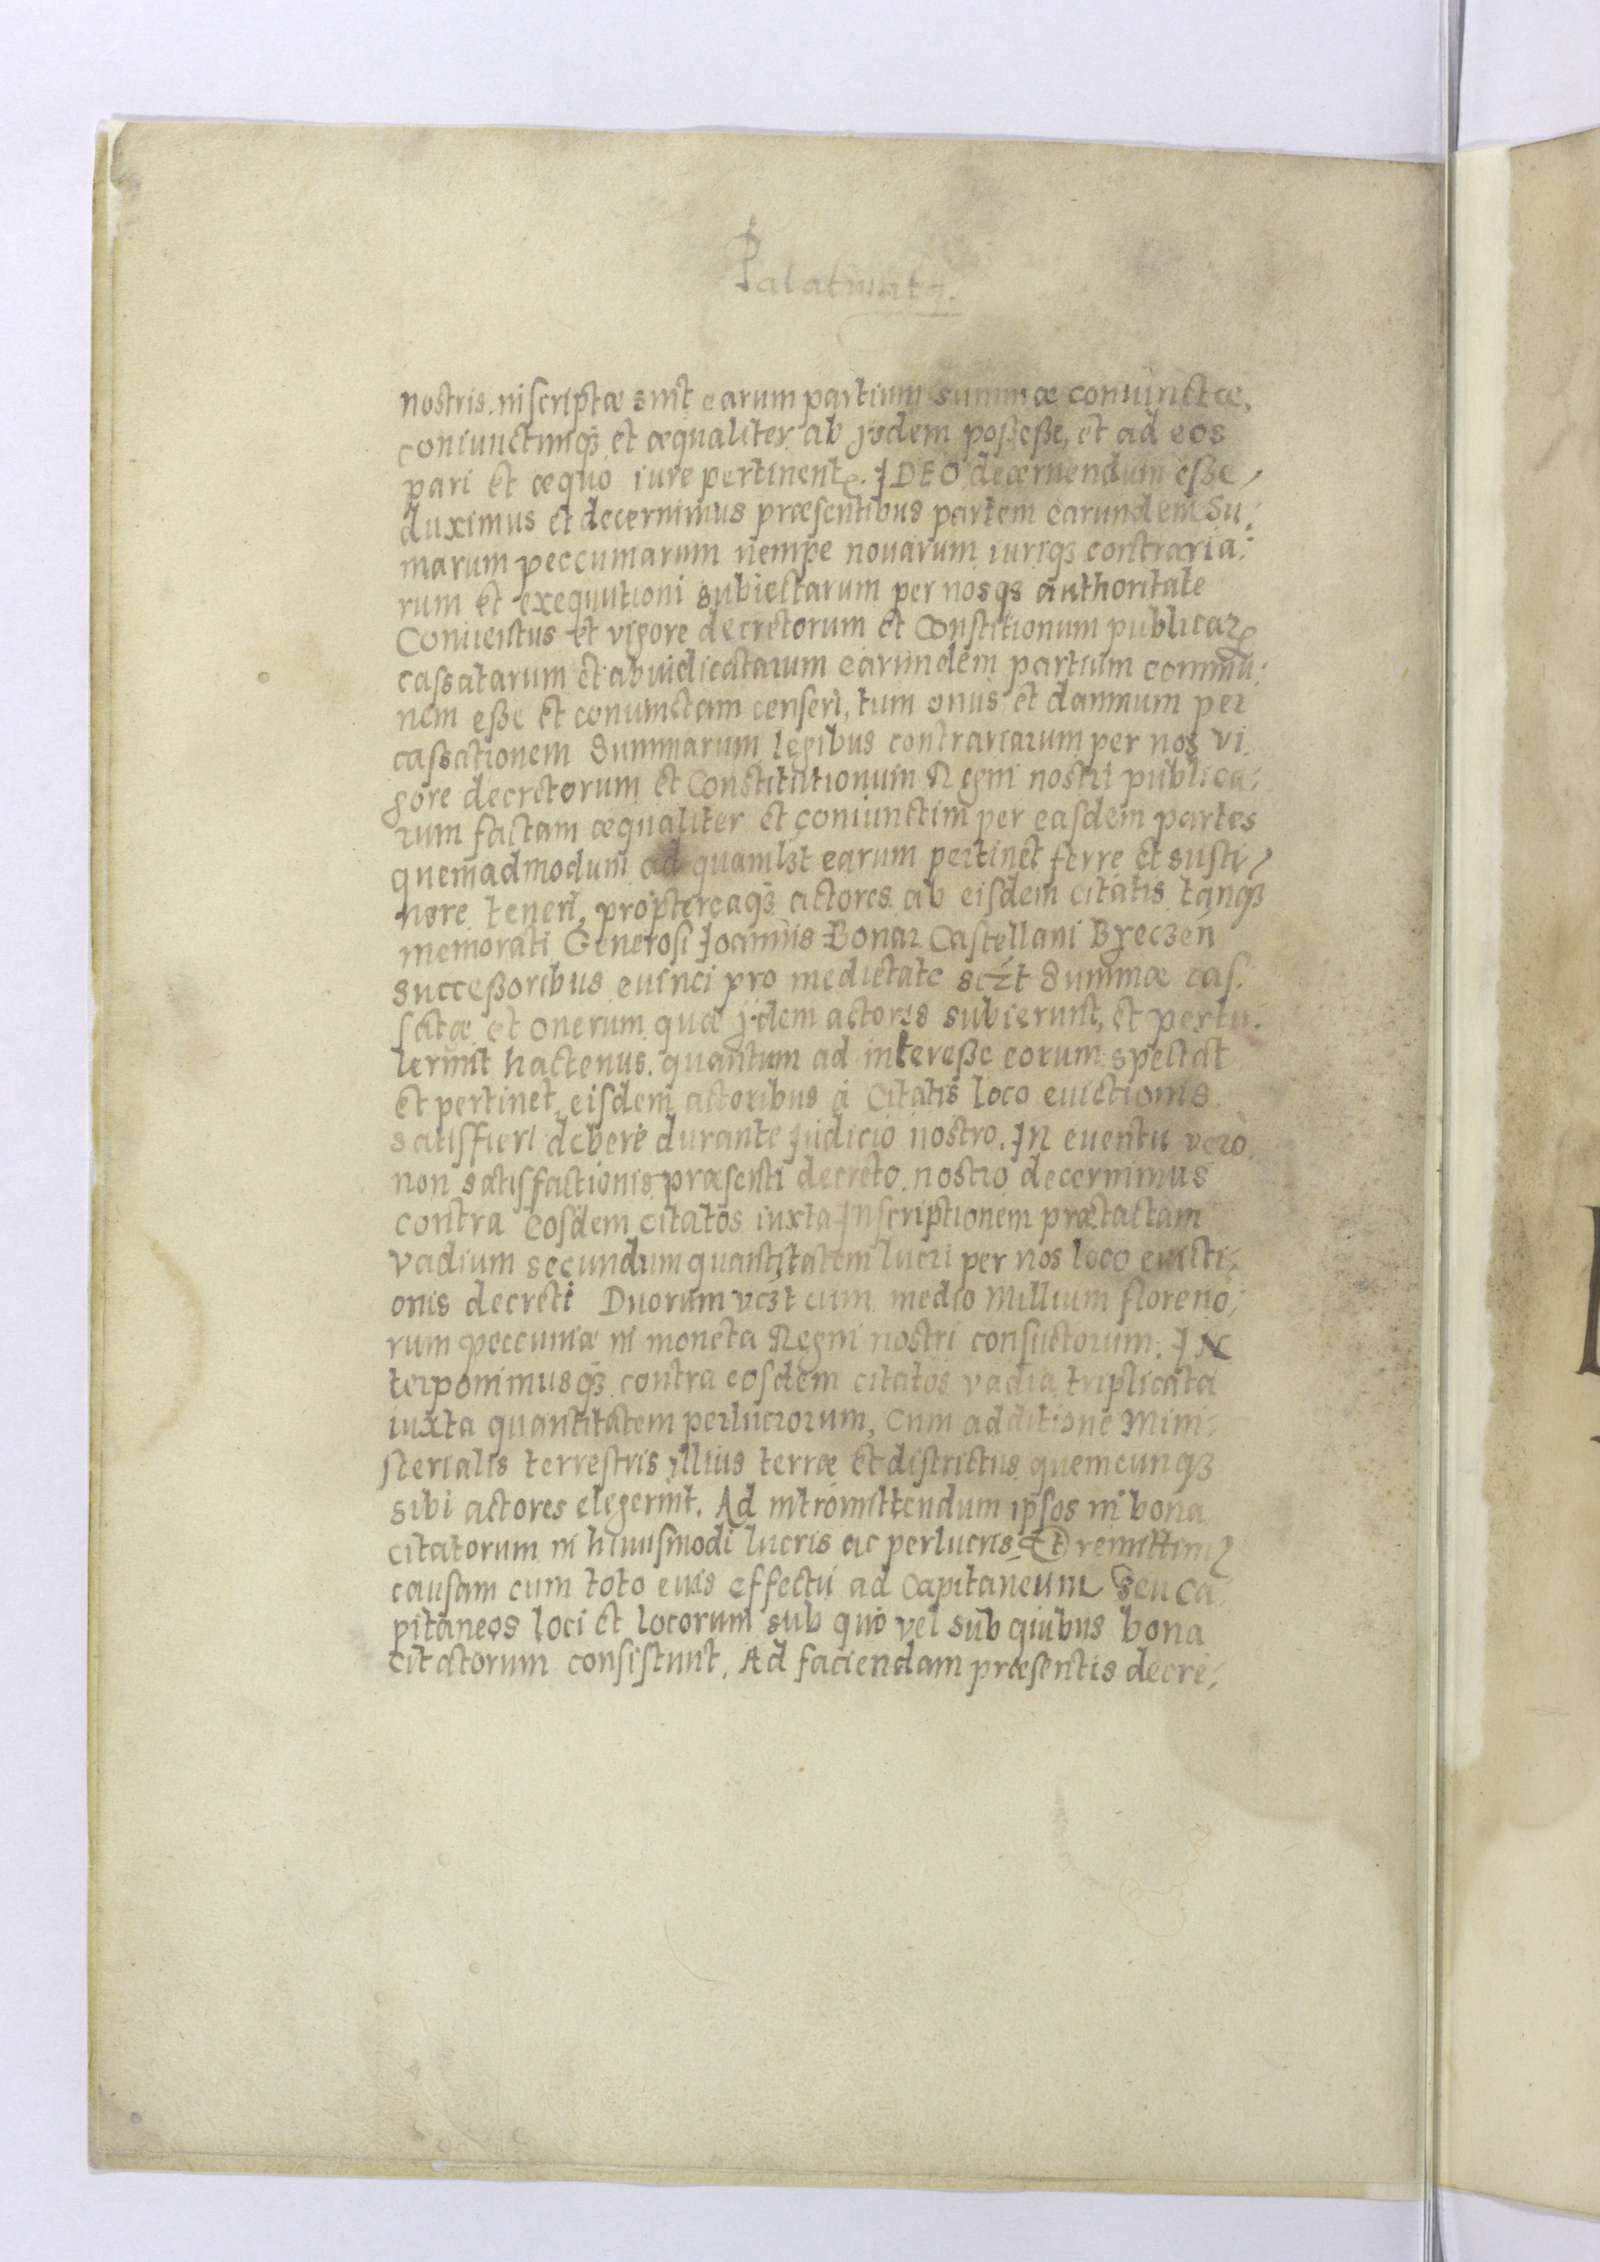 Palatinatꝰ.
nostris inscriptæ sint earum partium summæ coniunctæ,
coniunctimqꝫ et æqualiter ab ijsdem posseßæ, et ad eos
pari et æquo iure pertinentes. IDEO decernendum eße
duximus et decernimus præsentibus partem earundem Su-
marum peccuniarum nempe nouarum iuriqꝫ contraria-
rum et exequutioni subiectarum per nosqꝫ authoritate
Conuentus et vigore decretorum et Constitionum publicaꝝ
cassatarum et abiudicatarum earundem partium commu-
nem eße et coniunctam censeri, tum onus et damnum per
cassationem Summarum legibus contrariarum per nos vi-
gore decretorum et Constitutionum Regni nostri publica-
rum factam æqualiter et coniunctim per easdem partes
quemadmodum ad quamlꝫt earum pertinet ferre et susti-
nere teneri, proptereaqꝫ actores ab eisdem citatis tanqꝫ
memorati Generosi Ioannis Bonar Castellani Byeczen
Succeßoribus euinci pro medietate sczt Summæ cas-
satæ et onerum quæ ijdem actores subierunt, et pertu-
lerunt hactenus quantum ad intereße eorum spectat
et pertinet, eisdem actoribus à Citatis loco euictionis
satisfieri debere durante Iudicio nostro. In euentu verò
non satisfactionis præsenti decreto nostro decernimus
contra eosdem citatos iuxta Inscriptionem prætactam
vadium secundum quantitatem lucri per nos loco euicti-
onis decreti Duorum vczt cum medio Millium floreno-
rum peccuniæ in moneta Regni nostri consuetorum. IN
terponimusqꝫ contra eosdem citatos vadia triplicata
iuxta quantitatem perlucrorum, Cum additione Mini-
sterialis terrestris illius terræ et districtus quemcunqꝫ
sibi actores elegerint. Ad intromittendum ipsos in bona
citatorum in huiusmodi lucris ac perlucris. Et remittimꝰ
causam cum toto eius effectu ad Capitaneum Seu Ca-
pitaneos loci et locorum sub quo vel sub quibus bona
citatorum consistunt. Ad faciendam præsentis decre-